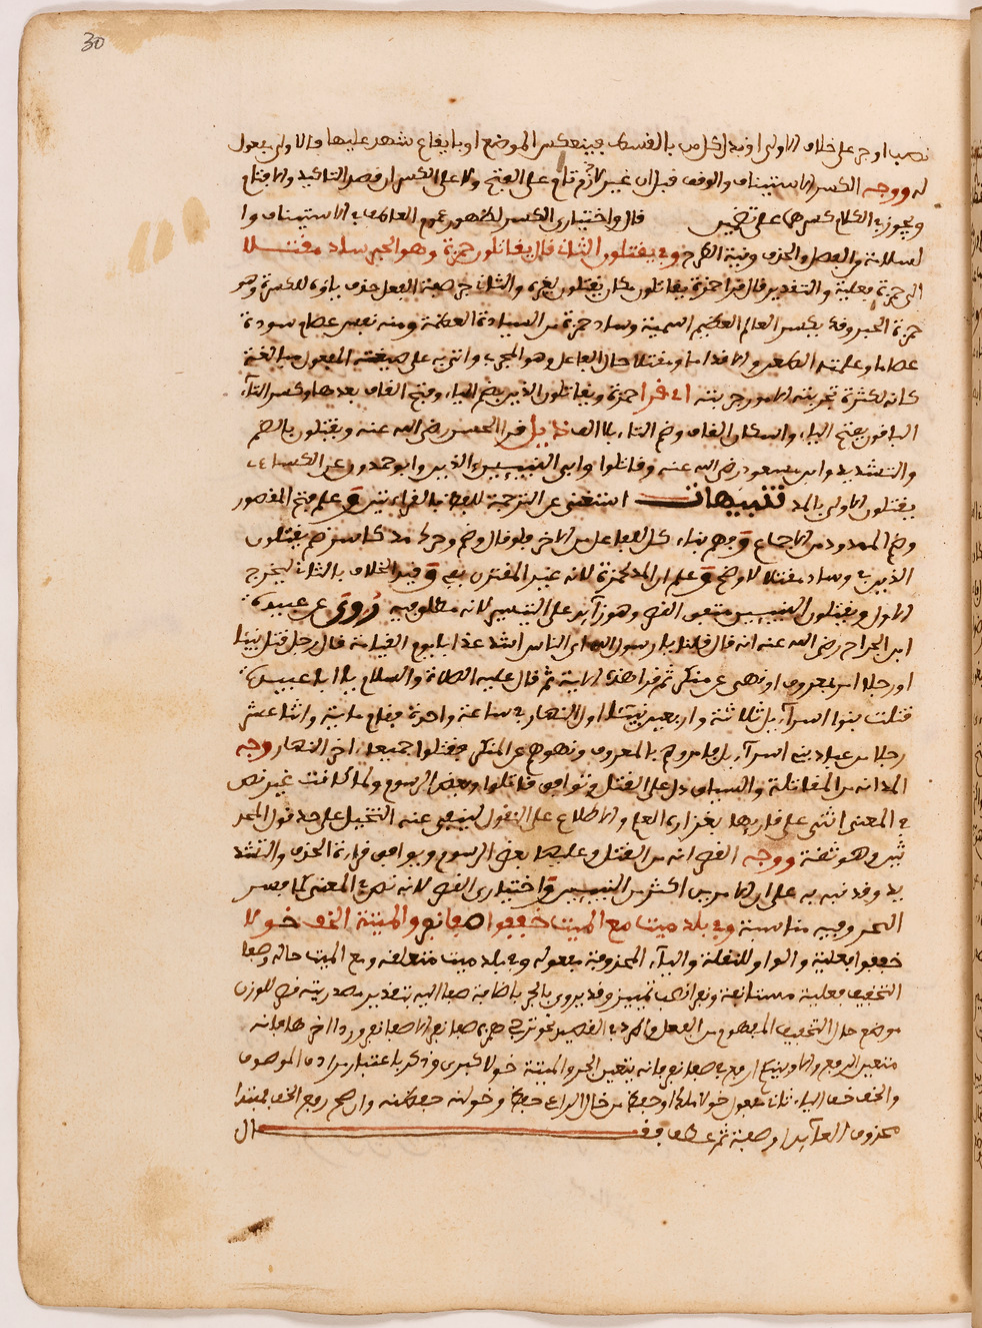 30
نصب او جر على خلاف الاولى او بدل كل من بالقسط فينعكس الموضع او بايقاع شهد عليها فالاولى مفعول
له ووجه الكسر الاستيناف والوقف قبل ان غير لازم تام على الفتح ولا على الكسر ان قصر التاكيد والا فتام
ويجوز في الكلام كسرهما على تقدير قال واختياري الكسر لظهور عموم العامل في الاستيناف وا
لسلامة والفصل والحذف ونية الطرح وفي يقتلون الثان قال يقاتلون حمزة وهو الحبر ساد مقتلا
الى حمزة فعلية والتقدير قال قرا حمزة يقاتلون مكان يقتلون لغيره والثان جر صفة الفعل حذف ياؤه للكسرة وهو
حمزة الحبر وقد يكسر العالم العظيم السمية وساد حمزة من السيادة العظمة ومنه نفس عصام سودت
عصاما وعلمته الكر والاقداما ومقتلا حال الفاعل وهو المجرب واتى به على صيغة المفعول مبالغة
كانه لكثرة تجربته الامور جربته اي قرا حمزة ويقاتلون الذين بضم الياء وفتح القاف بعدها وكسر التاء
الباقون بفتح الياء واسكان القاف وضم التاء بلا الف تذييل قرا الحسن رضي الله عنه ويقتلون بالضم
والتشديد وابن مسعود رضي الله عنه وقاتلوا وابي النبيين والذين وابو حمدون عن الكسائي
يقتلون الاولى بالمد تنبيهات استغنى عن الترجمة للفظ بالقراءتين وعلم فتح المقصور
وضم الممدود من الاجماع وفهم بناء كل للفاعل من الاخر فلو قال وضم وحرك مد كاسر ضم يقتلون
الذين وساد مقتلا لاوضح وعلم ان المد لحمزة لانه غير المقترن بفي وقيد الخلاف بالثان ليخرج
الاول ويقتلون النبيين متفق القصر وهو زايد على التيسير لانه مطلق فيه روى عن عبيدة
ابن الجراح رضي الله عنه انه قال قلنا يا رسول الله اي الناس اشد عذابا يوم القيامة قال رجل قتل نبيا
او رجلا امر بمعروف او نهى عن منكر ثم قرا هذه الاية ثم قال عليه الصلاة والسلام يا ابا عبيدة
قتلت بنوا اسراءيل ثلاثة واربعين نبيا اول النهار في ساعة واحدة فقام مائة واثنا عشر
رجلا من عباد بني اسراءيل فامروهم بالمعروف ونهوهم عن المنكر فقتلوا جميعا اخر النهار وجه
المد انه من المقاتلة والسياق دل على القتل وتوافق قاتلوا وبعض الرسوم ولما كانت غير نص
في المعنى اثنى على قاريها بغزارة العلم والاطلاع على النقول لينتفي عنه التخيل على حد قول المحد
ثين وهو ثقة ووجه القصر انه من القتل وعليها بعض الرسوم ويوافق قراءة الحذف والتشد
يد وقد نبه به على ان الامرين اكثر من النبيين واختياري القصر لانه نص في المعنى لما مفسر
البحر وفيه مناسبة وفي بلد ميت مع الميت خففوا صفا نفرا والميتة الخف خولا
خففوا فعلية والواو للنقلة والياء المحذوفة مفعوله وفي بلد ميت متعلقه ومع الميت حاله وصفا
التخفيف فعلية مستانفة ونفرا نصب تمييز وقد يروى بالجر باضافة صفا اليه بتقدير مصدريته قصر للوزن
موضع حال التخفيف المفهوم من الفعل
متعين الرفع
والخف خف الياء ثان مفعول خولا ملك او حفظ من خال الراعي حفظ وخولته حفظته وان صح رفع الخف فمبتدا
محذوف العايد او صفة ثم عطف فقـال